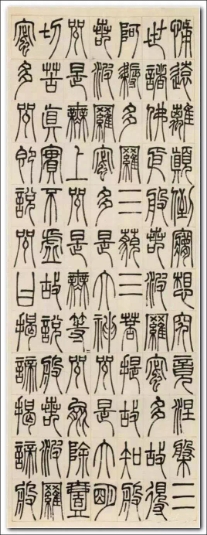 怖遠離顛倒夢想究竟涅槃三
世諸佛依般若波羅蜜多故得
阿耨多羅三藐三菩提故知般
若波羅蜜多是大神咒是大明
咒是無上咒是無等等咒能除壹
切苦真實不虛故說般若波羅
蜜多咒即說咒曰揭諦揭諦般